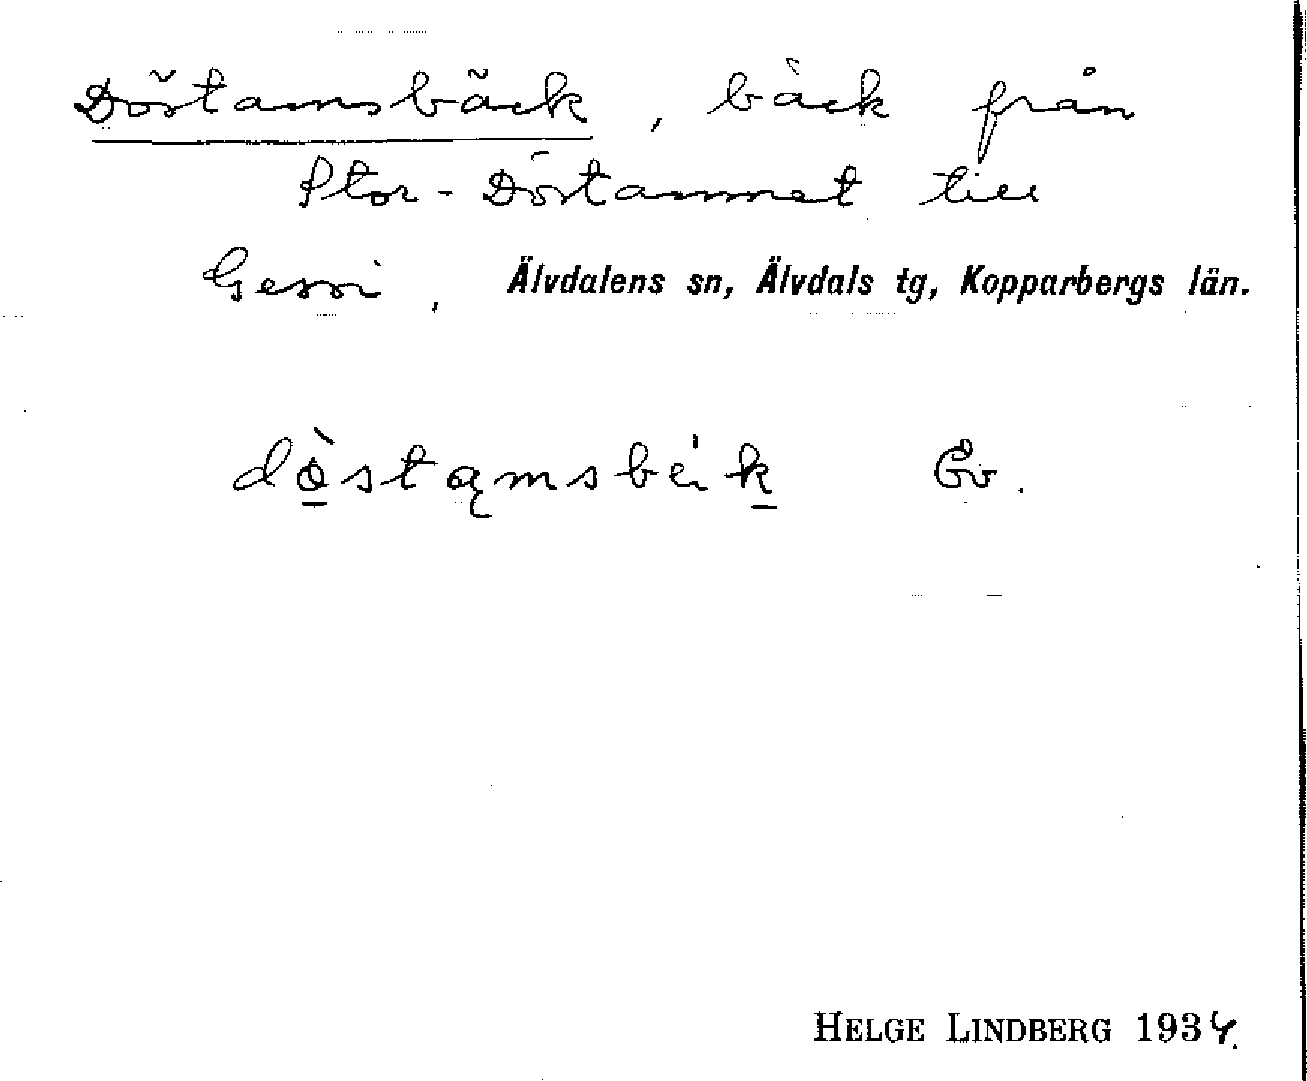 Döstamsbäck, bäck från
Stor-Döstammet till
Gessi, Älvdalens sn, Älvdals tg, Kopparbergs län.
dòstąmsbèk Ev.
HELGE LINDBERG 1934.